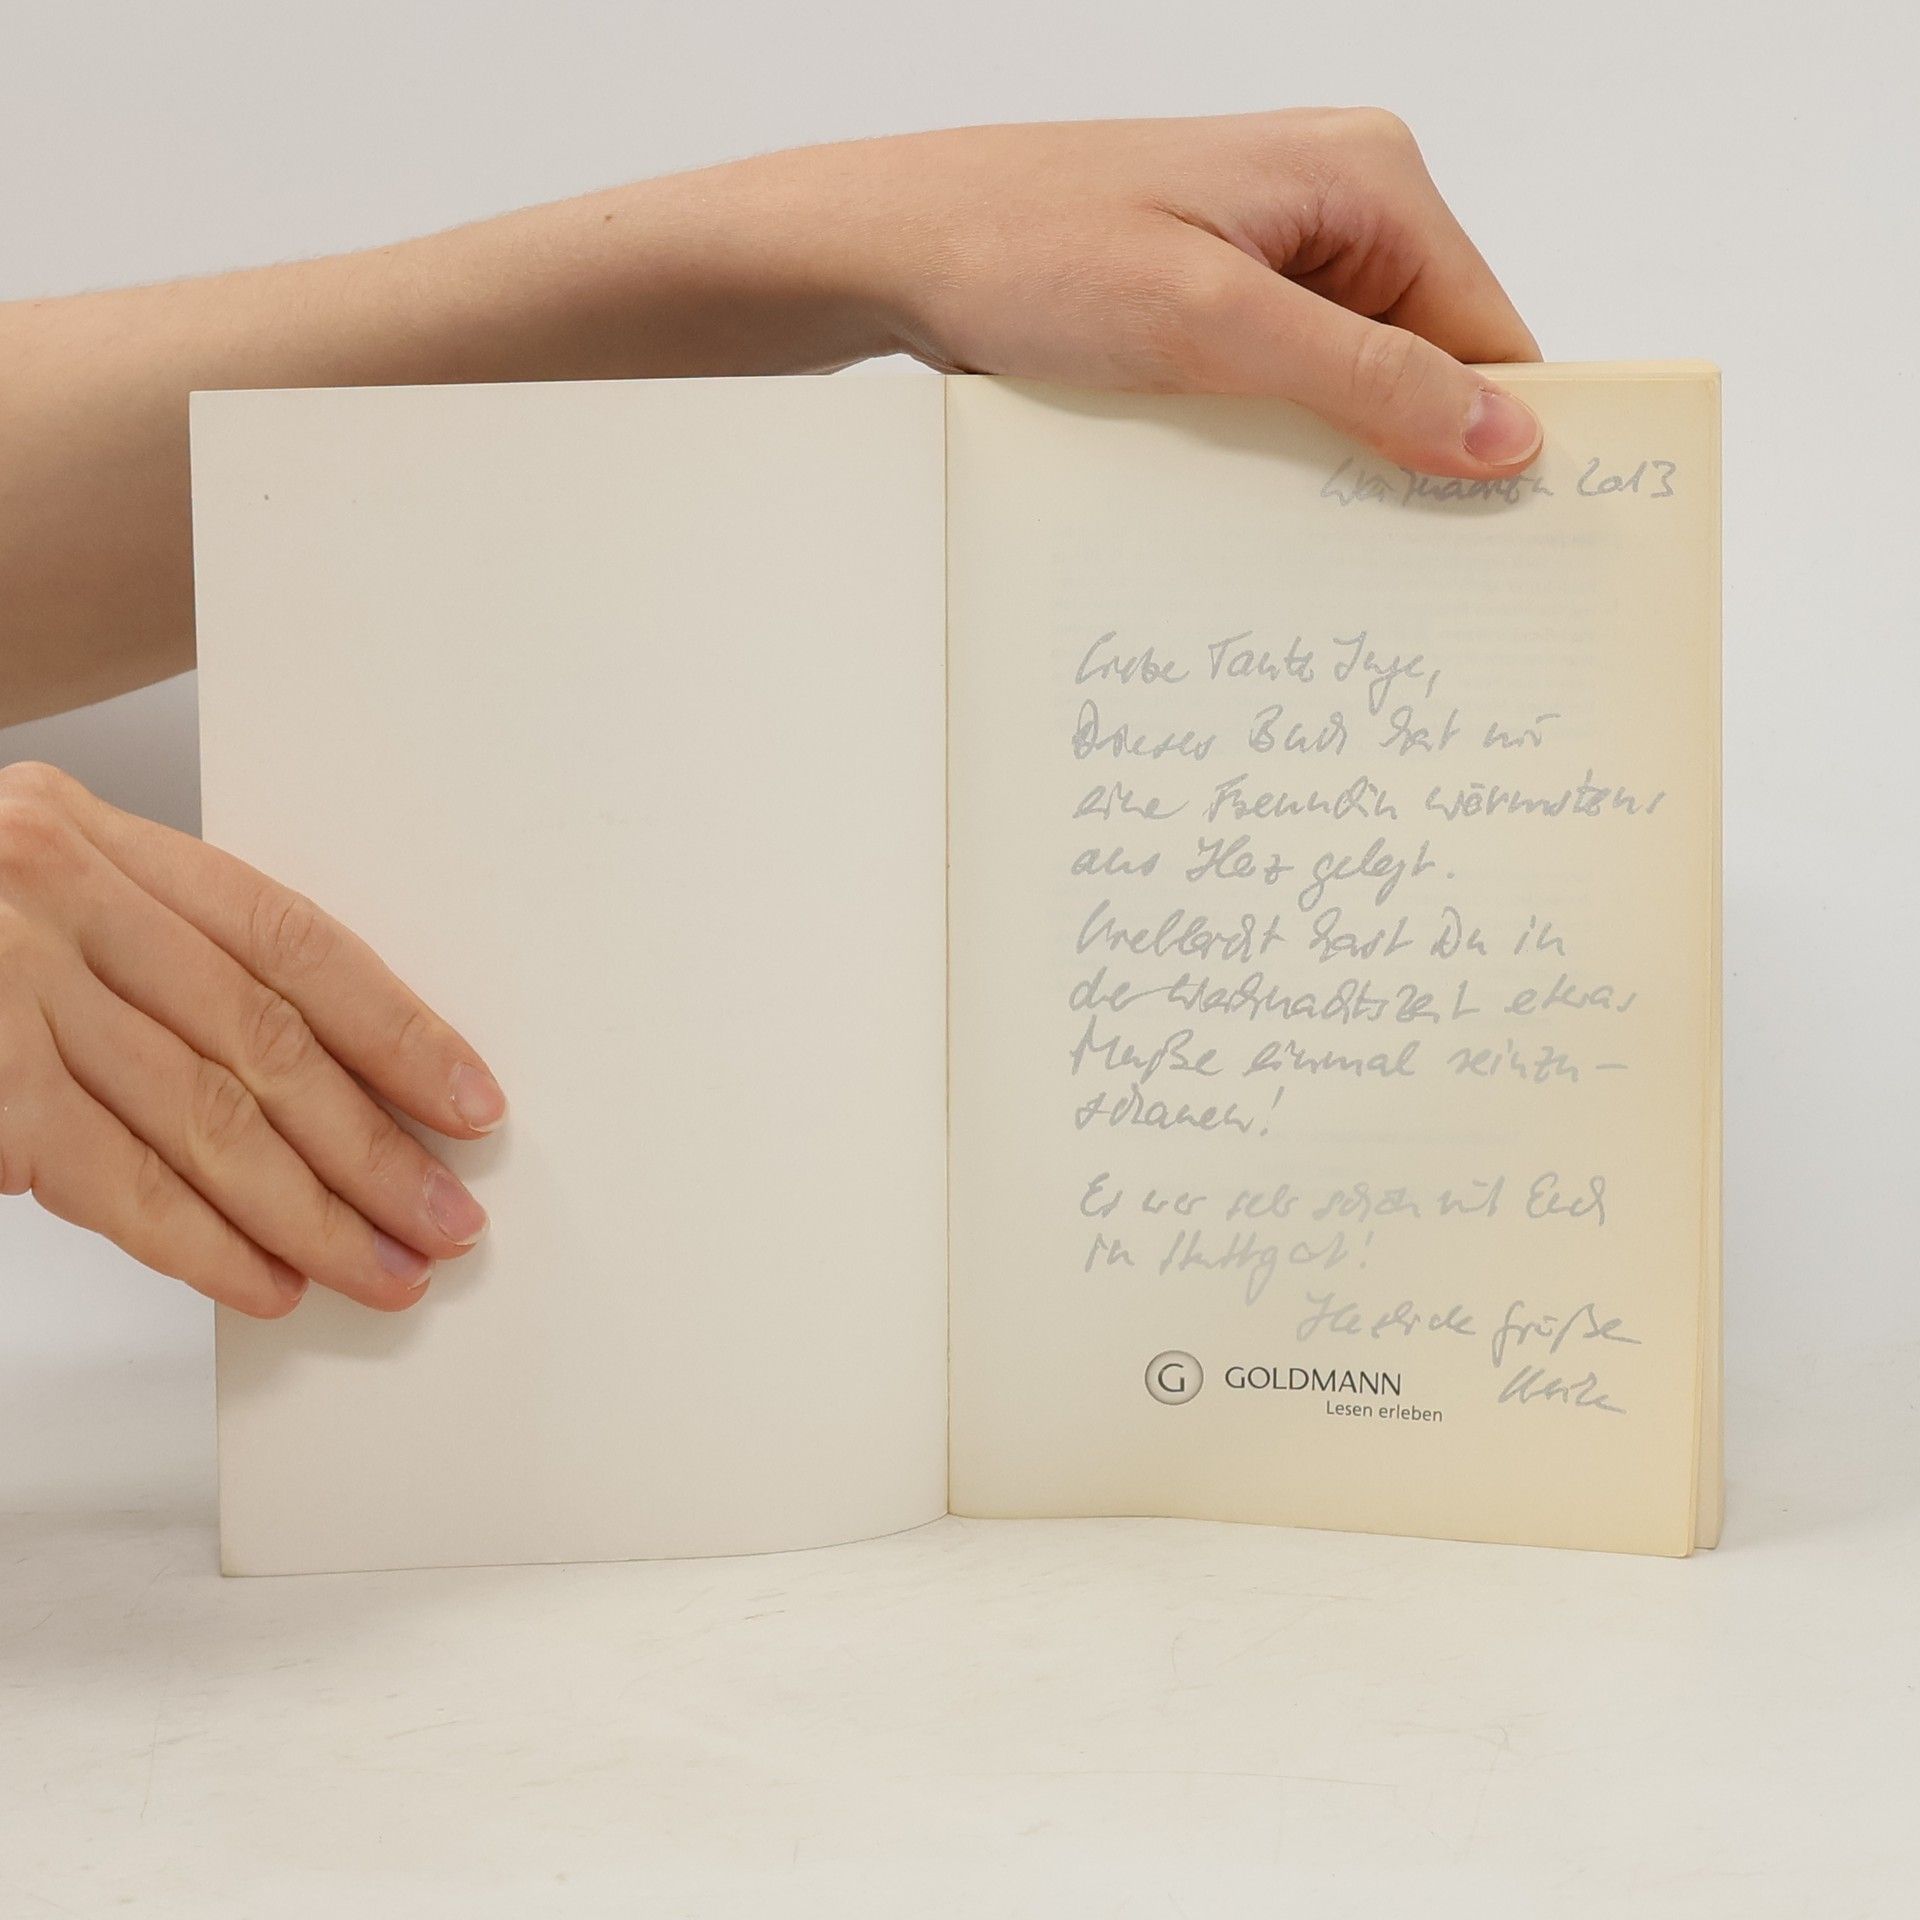 Weihnachten 2013
Liebe Tante Inge,
Dieses Buch hat mir
eine Freundin wärmstens
ans Herz gelegt.
Vielleicht hast Du in
der Weihnachtszeit etwas
Muße einmal reinzu-
schauen!
Es war sehr schön mit Euch
in Stuttgart!
Herzliche Grüße
G GOLDMANN
Lesen erleben